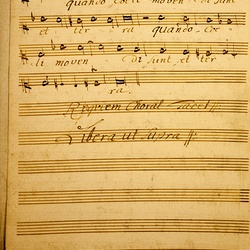 quando coeli movendi sunt
et ter ra quando coe
li moven di sunt et ter
ra.
Requiem Choral Tacet
Libera ut supra